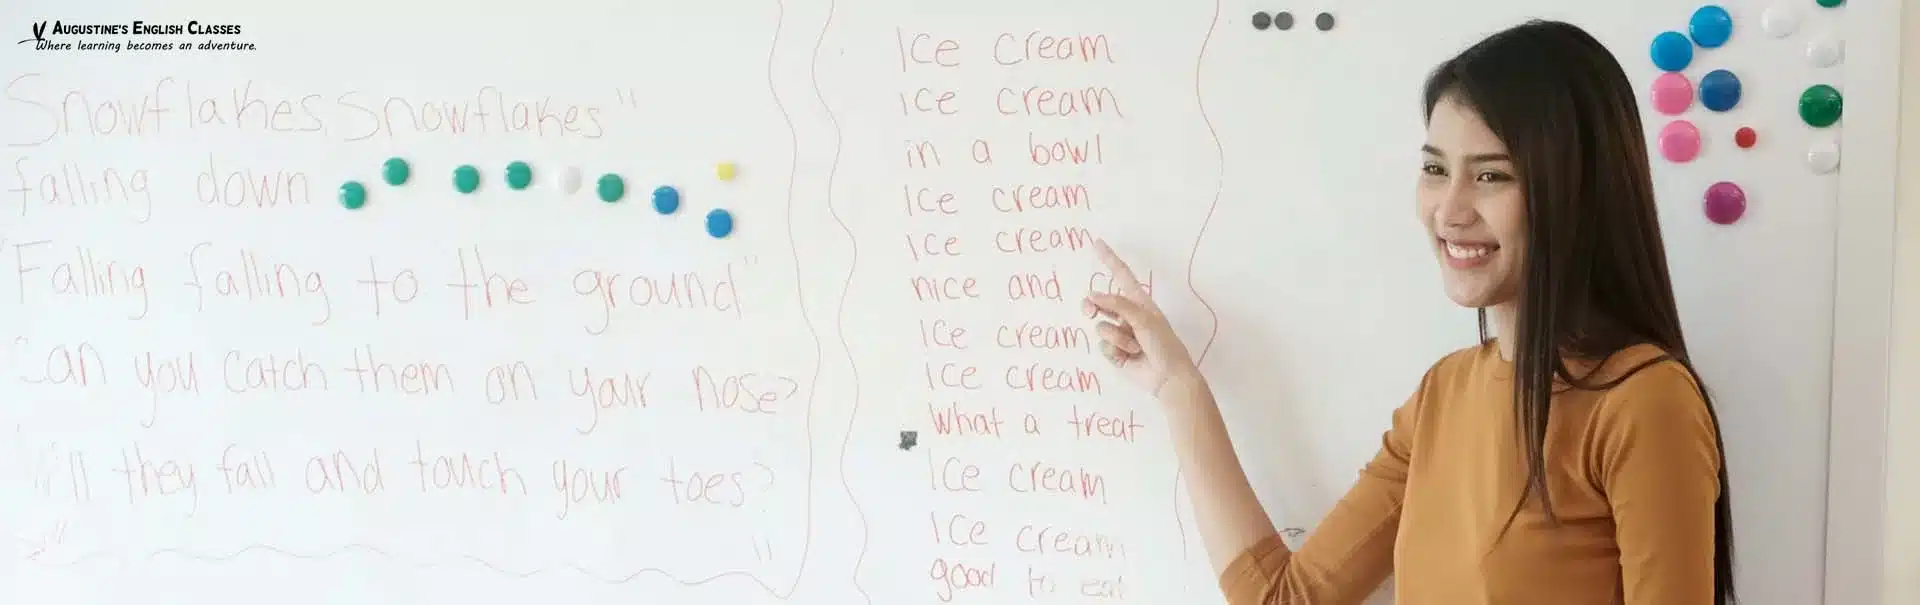 AUGUSTINE'S ENGLISH CLASSES
Where learning becomes an adventure.
Snowflakes, Snowflakes"
falling down
"Falling falling to the ground"
Can you catch them on your nose?
Will they fall and touch your toes?
Ice cream
ice cream
in a bowl
Ice cream
Ice cream
nice and cold
Ice cream
Ice cream
What a treat
Ice cream
Ice cream
good to eat